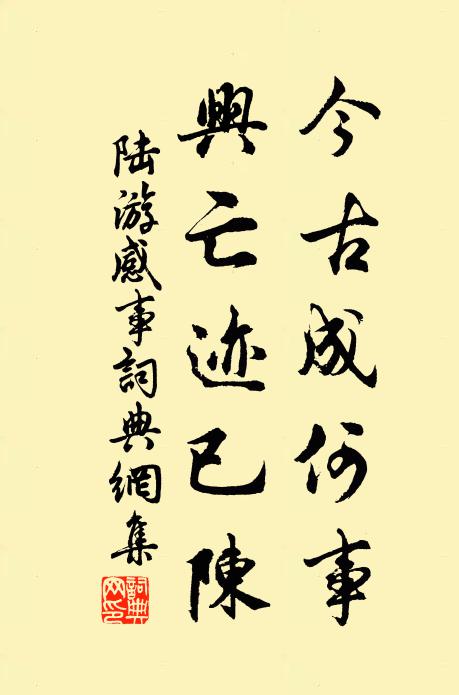 今古成何事
興亡迹已陳
陆游感事詞典網集
詞典网印